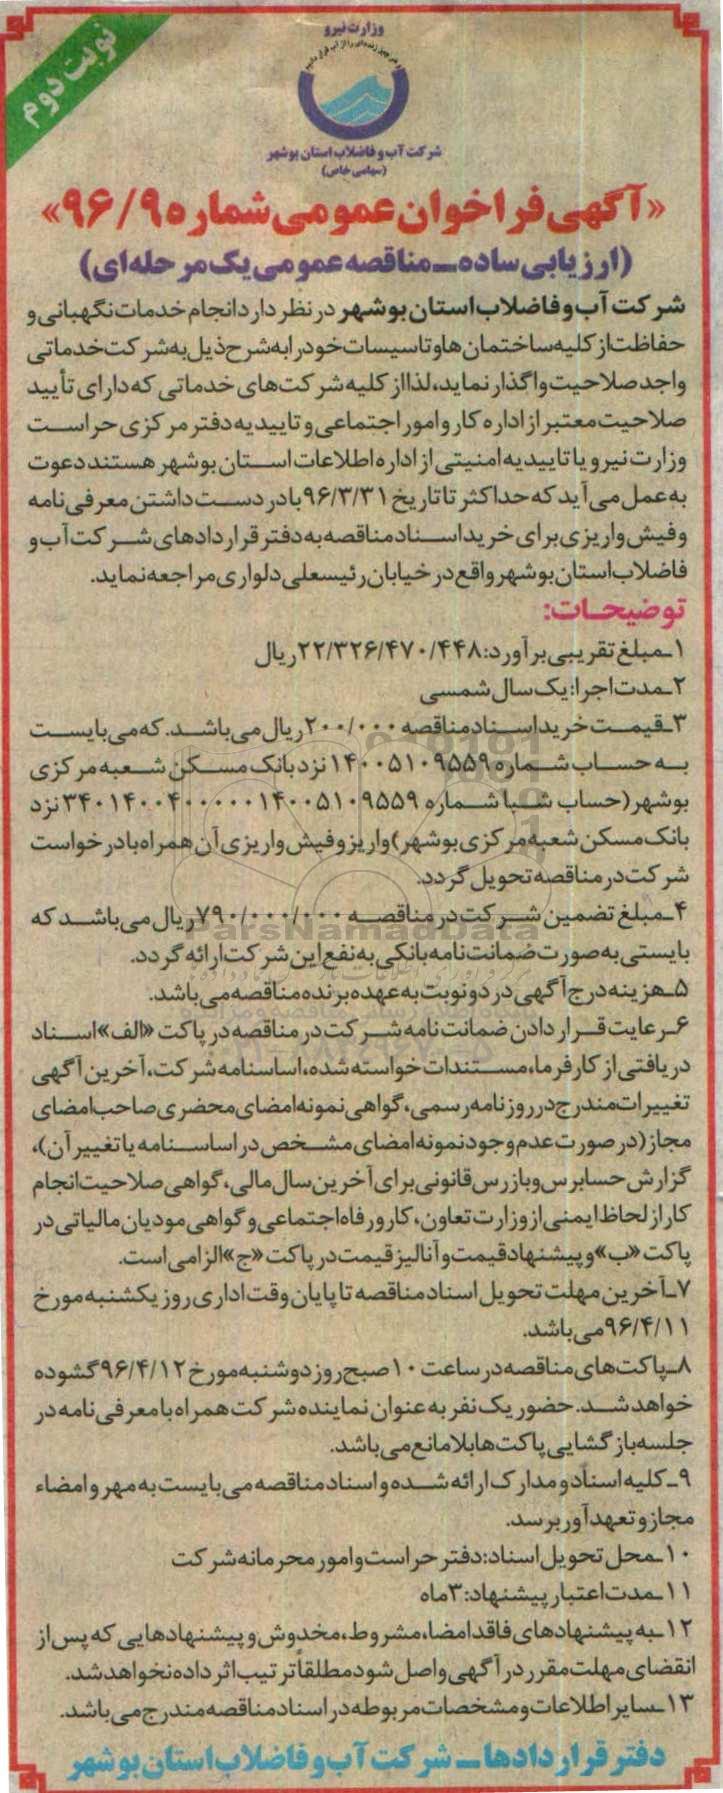 نوبت دوم
وزارت نیرو
شرکت آب و فاضلاب استان بوشهر
(سهامی خاص)
«آگهی فراخوان عمومی شماره ۹۶/۹»
(ارزیابی ساده_مناقصه عمومی یک مرحله‌ای)
شرکت آب و فاضلاب استان بوشهر در نظر دارد انجام خدمات نگهبانی و
حفاظت از کلیه ساختمان ها و تاسیسات خود را به شرح ذیل به شرکت خدماتی
واجد صلاحیت واگذار نماید، لذا از کلیه شرکت های خدماتی که دارای تأیید
صلاحیت معتبر از اداره کار و امور اجتماعی و تاییدیه دفتر مرکزی حراست
وزارت نیرو یا تاییدیه امنیتی از اداره اطلاعات استان بوشهر هستند دعوت
به عمل می آید که حداکثر تا تاریخ ۹۶/۳/۳۱ با در دست داشتن معرفی نامه
و فیش واریزی برای خرید اسناد مناقصه به دفتر قراردادهای شرکت آب و
فاضلاب استان بوشهر واقع در خیابان رئیسعلی دلواری مراجعه نماید.
توضیحات:
۱_مبلغ تقریبی برآورد: ۲۲/۳۲۶/۴۷۰/۴۴۸ ریال
۲_مدت اجرا: یک سال شمسی
۳_قیمت خرید اسناد مناقصه ۲۰۰/۰۰۰ ریال می باشد. که می بایست
به حساب شماره ۱۴۰۰۵۱۰۹۵۵۹ نزد بانک مسکن شعبه مرکزی
بوشهر (حساب شبا شماره ۳۴۰۱۴۰۰۴۰۰۰۰۰۱۴۰۰۵۱۰۹۵۵۹ نزد
بانک مسکن شعبه مرکزی بوشهر) واریز و فیش واریزی آن همراه با درخواست
شرکت در مناقصه تحویل گردد.
۴_مبلغ تضمین شرکت در مناقصه ۷۹۰/۰۰۰/۰۰۰ ریال می باشد که
بایستی به صورت ضمانت نامه بانکی به نفع این شرکت ارائه گردد.
۵_هزینه درج آگهی در دو نوبت به عهده برنده مناقصه می باشد.
۶_رعایت قرار دادن ضمانت نامه شرکت در مناقصه در پاکت «الف» اسناد
دریافتی از کارفرما، مستندات خواسته شده، اساسنامه شرکت، آخرین آگهی
تغییرات مندرج در روزنامه رسمی، گواهی نمونه امضای محضری صاحب امضای
مجاز (در صورت عدم وجود نمونه امضای مشخص در اساسنامه یا تغییر آن)،
گزارش حسابرس و بازرس قانونی برای آخرین سال مالی، گواهی صلاحیت انجام
کار از لحاظ ایمنی از وزارت تعاون، کار و رفاه اجتماعی و گواهی مودیان مالیاتی در
پاکت «ب» و پیشنهاد قیمت و آنالیز قیمت در پاکت «ج» الزامی است.
۷_آخرین مهلت تحویل اسناد مناقصه تا پایان وقت اداری روز یکشنبه مورخ
۹۶/۴/۱۱ می باشد.
۸_پاکت های مناقصه در ساعت ۱۰ صبح روز دوشنبه مورخ ۹۶/۴/۱۲ گشوده
خواهد شد. حضور یک نفر به عنوان نماینده شرکت همراه با معرفی نامه در
جلسه بازگشایی پاکت ها بلامانع می باشد.
۹_کلیه اسناد و مدارک ارائه شده و اسناد مناقصه می بایست به مهر و امضاء
مجاز و تعهدآور برسد.
۱۰_محل تحویل اسناد: دفتر حراست و امور محرمانه شرکت
۱۱_مدت اعتبار پیشنهاد: ۳ ماه
۱۲_به پیشنهادهای فاقد امضا، مشروط، مخدوش و پیشنهادهایی که پس از
انقضای مهلت مقرر در آگهی واصل شود مطلقاً ترتیب اثر داده نخواهد شد.
۱۳_سایر اطلاعات و مشخصات مربوطه در اسناد مناقصه مندرج می باشد.
دفتر قراردادها_شرکت آب و فاضلاب استان بوشهر
ParsNamadData